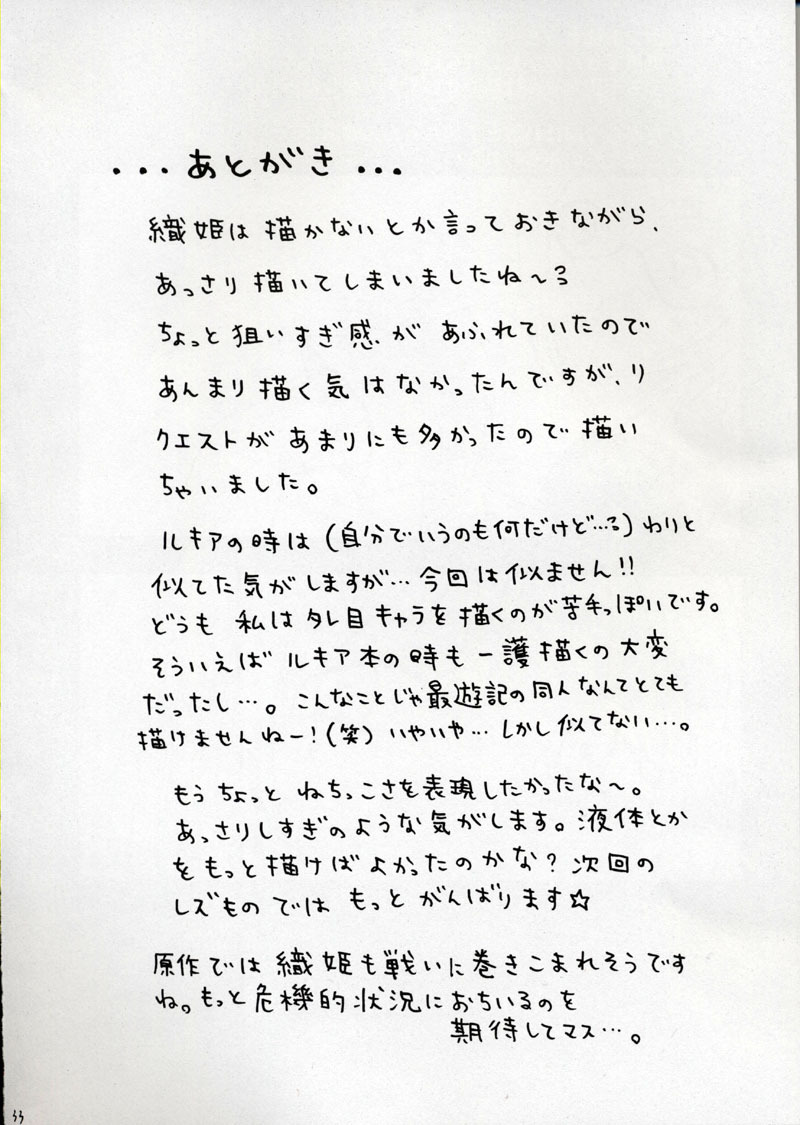 ・・・あとがき・・・
織姫は描かないとか言っておきながら、
あっさり描いてしまいましたね〜ろ
ちょっと狙いすぎ感があふれていたので
あんまり描く気はなかったんですが、リ
クエストがあまりにも多かったので描い
ちゃいました。
ルキアの時は(自分でいうのも何だけど…ろ)わりと
似てた気がしますが…今回は似ません!!
どうも私はタレ目キャラを描くのが苦手っぽいです。
そういえばルキア本の時も一護描くの大変
だったし…。こんなことじゃ最遊記の同人なんてとても
描けませんねー!(笑)いやいや…しかし似てない…。
もうちょっとねちっこさを表現したかったな〜。
あっさりしすぎのような気がします。液体とか
をもっと描けばよかったのかな?次回の
レズものではもっとがんばります☆
原作では織姫も戦いに巻きこまれそうです
ね。もっと危機的状況におちいるのを
期待してマス…。
33